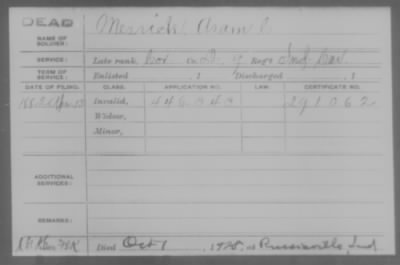 DEAD
Merrick Asam C
NAME OF SOLDIER:
SERVICE: Late rank, Cor. Co. D, 9 Reg't Ind. Cav.
TERM OF SERVICE: Enlisted , 1 Discharged , 1
DATE OF FILING. CLASS. APPLICATION NO. LAW. CERTIFICATE NO.
1882 Apr 13 Invalid, 446343 291062
Widow,
Minor,
ADDITIONAL SERVICES:
REMARKS:
Died Oct 1, 1925, at Russiaville, Ind.